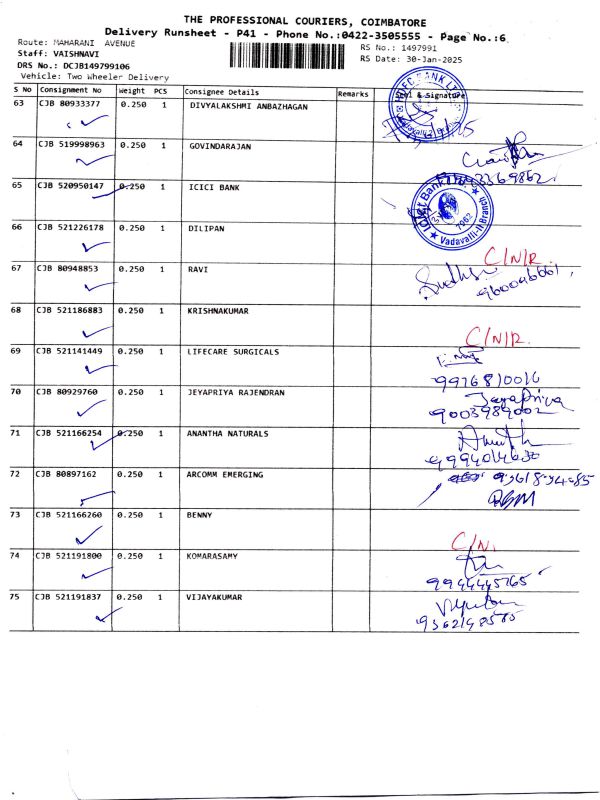 THE PROFESSIONAL COURIERS, COIMBATORE
Delivery Runsheet - P41 - Phone No.:0422-3505555 - Page No.:6
Route: MAHARANI AVENUE
RS No.: 1497991
Staff: VAISHNAVI
RS Date: 30-Jan-2025
DRS No.: DCJB149799106
Vehicle: Two Wheeler Delivery
S No Consignment No Weight PCS Consignee Details Remarks Seal & Signature
63 CJB 80933377 0.250 1 DIVYALAKSHMI ANBAZHAGAN
HDFC BANK LTD
64 CJB 519998963 0.250 1 GOVINDARAJAN
65 CJB 520950147 0.250 1 ICICI BANK
ICICI Bank Ltd. 7962 ★ Vadavalli-II Branch ★
66 CJB 521226178 0.250 1 DILIPAN
C/N/R.
67 CJB 80948853 0.250 1 RAVI
68 CJB 521186883 0.250 1 KRISHNAKUMAR
C/N/R.
69 CJB 521141449 0.250 1 LIFECARE SURGICALS
9976810016
70 CJB 80929760 0.250 1 JEYAPRIYA RAJENDRAN
Jeyapriya
9003989002
71 CJB 521166254 0.250 1 ANANTHA NATURALS
72 CJB 80897162 0.250 1 ARCOMM EMERGING
73 CJB 521166260 0.250 1 BENNY
C/N.
74 CJB 521191800 0.250 1 KOMARASAMY
75 CJB 521191837 0.250 1 VIJAYAKUMAR